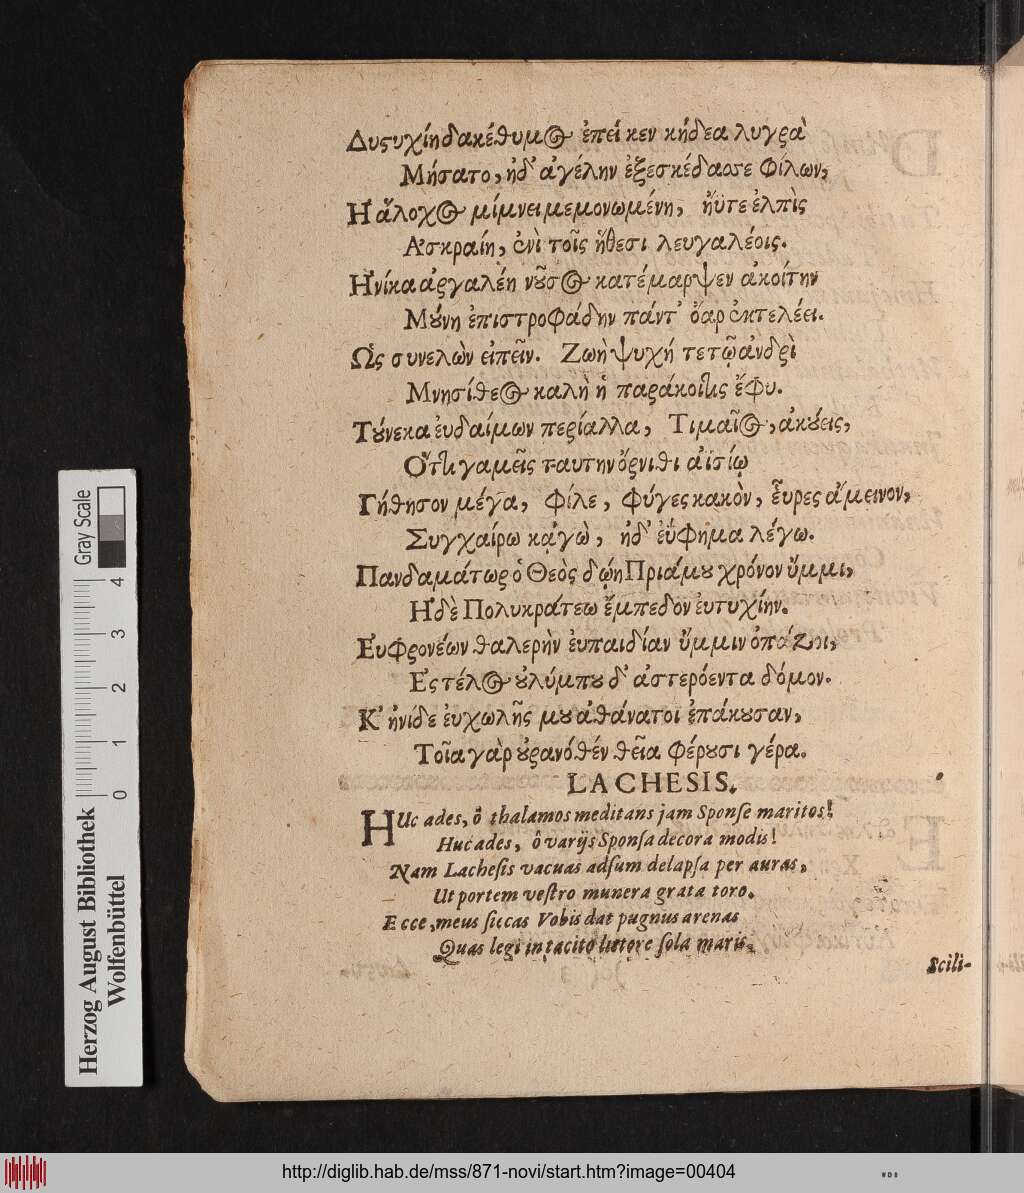 Δυςυχίη δακέθυμος ἐπεί κεν κήδεα λυγρὰ
Μήσατο, ἠδ' ἀγέλην ἐξεσκέδασε φίλων,
Η ἄλοχος μίμνει μεμονωμένη, ἤϋτε ἐλπὶς
Ασκραίη, ἐνὶ τοῖς ἤθεσι λευγαλέοις.
Ηνίκα ἀργαλέη νοῦσος κατέμαρψεν ἀκοίτην
Μούνη ἐπιστροφάδην πάντ' ὄαρ ἐκτελέει.
Ως συνελὼν εἰπεῖν. Ζωὴ ψυχή τε τῷ ἀνδρὶ
Μνησίθεος καλὴ ἡ παράκοιτις ἔφυ.
Τούνεκα ἐυδαίμων περίαλλα, Τιμαῖος, ἀκούεις,
Οτι γαμεῖς ταυτην ὄρνιθι αἰσίῳ
Γήθησον μέγα, φίλε, φύγες κακὸν, ἕυρες ἄμεινον,
Συγχαίρω κᾀγὼ, ἠδ' ἐύφημα λέγω.
Πανδαμάτωρ ὁ Θεὸς δῴη Πριάμου χρόνον ὔμμι,
Ηδὲ Πολυκράτεω ἔμπεδον ἐυτυχίην.
Ευφρονέων θαλερὴν ἐυπαιδίαν ὔμμιν ὀπάζοι,
Ες τέλος οὐλύμπου δ' ἀστερόεντα δόμον.
Κ' ἠνίδε ἐυχωλῆς μου ἀθάνατοι ἐπάκουσαν,
Τοῖα γὰρ οὐρανόθέν θεῖα φέρουσι γέρα.
LACHESIS.
HUc ades, ô thalamos meditans jam Sponse maritos!
Huc ades, ô varijs Sponsa decora modis!
Nam Lachesis vacuas adsum delapsa per auras,
Ut portem vestro munera grata toro.
Ecce, meus siccas Vobis dat pugnus arenas
Quas legi in tacito littore sola maris.
Scili-
Herzog August Bibliothek
Wolfenbüttel
Gray Scale
0 1 2 3 4
http://diglib.hab.de/mss/871-novi/start.htm?image=00404
WDB